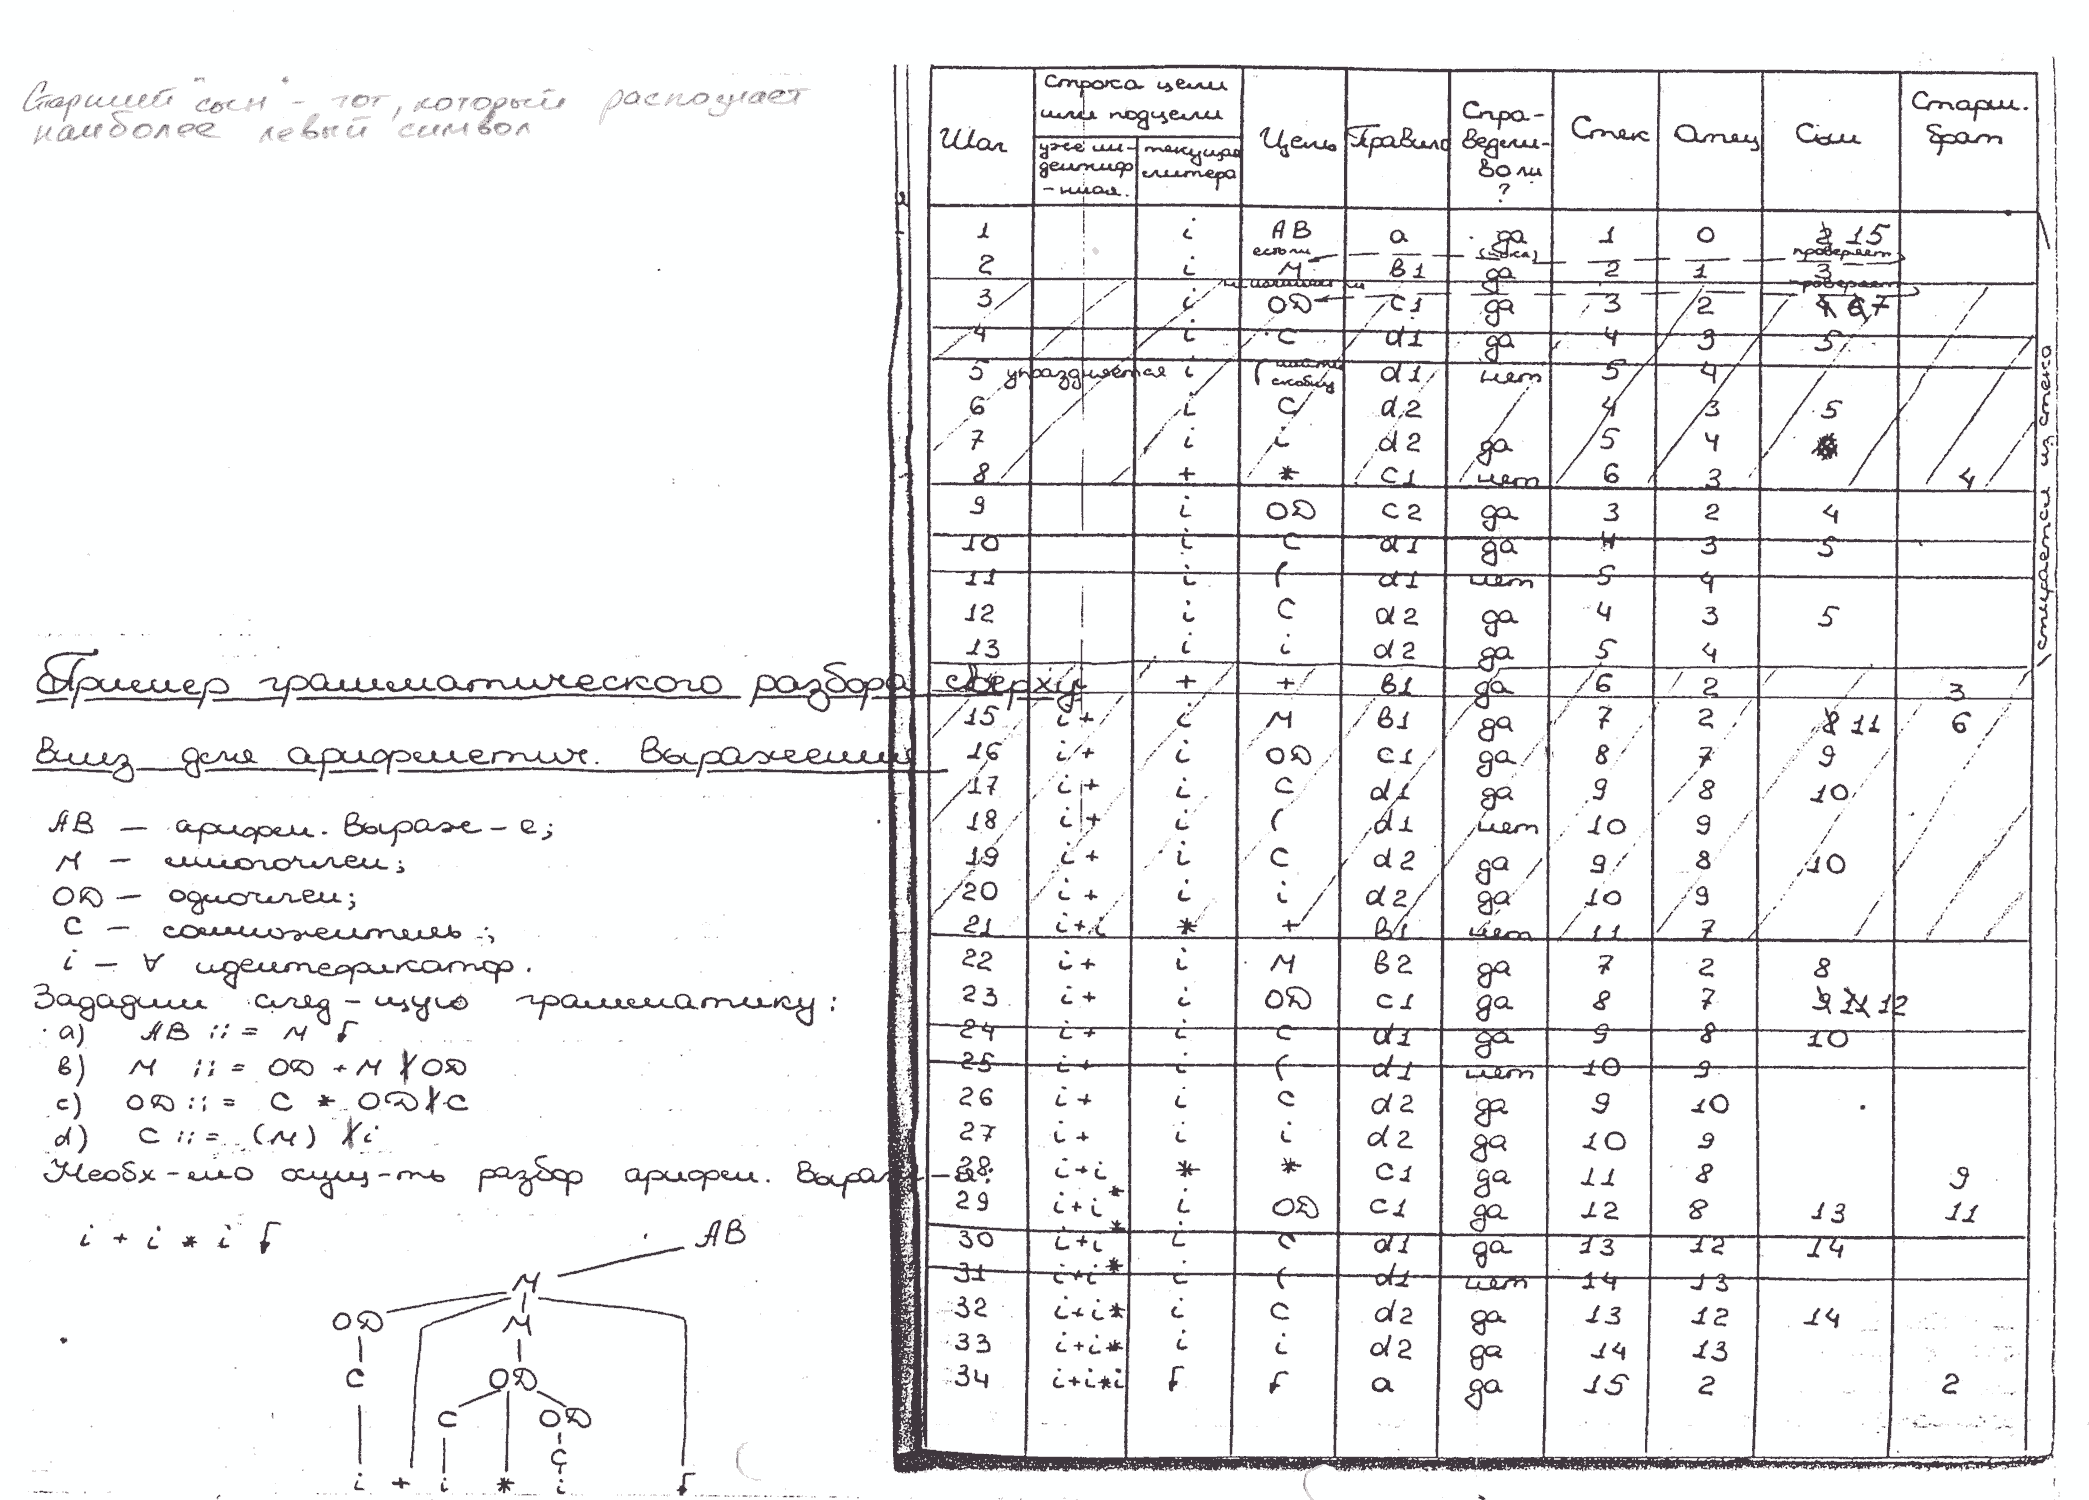 Старший "сын" - тот, который распознает
наиболее левый символ
Пример грамматического разбора сверху
вниз для арифметич. выражения
АВ — арифм. выраж-е;
М — многочлен;
ОД — одночлен;
С — сомножитель;
i — ∀ идентефикатор.
Зададим след-щую грамматику:
а) АВ ::= М ┌
в) М ::= ОД + М | ОД
с) ОД ::= С * ОД | С
d) С ::= (М) | i
Необх-мо осущ-ть разбор арифм. выраж-я:
i + i * i ┌
АВ
М
ОД М
С ОД
С ОД
С
i + i * i ┌
Шаг Строка цели или подцели Цель Правило Спра-ведли-во ли ? Стек Отец Сын Старш. брат
уже и-дентиф-нная. текущая литера
1 i АВ а да 1 0 2 15
если (пока) проверяет
2 i М в1 да 2 1 3
проверяет
3 i ОД с1 да 3 2 4 6 7
4 i С d1 да 4 3 5
5 упраздняется i ( найти скобку d1 нет 5 4
6 i С d2 4 3 5
7 i i d2 да 5 4
8 + * с1 нет 6 3 4
9 i ОД с2 да 3 2 4
10 i С d1 да 4 3 5
11 i ( d1 нет 5 4
12 i С d2 да 4 3 5
13 i i d2 да 5 4
+ + в1 да 6 2 3
15 i+ i М в1 да 7 2 8 11 6
16 i+ i ОД с1 да 8 7 9
17 i+ i С d1 да 9 8 10
18 i+ i ( d1 нет 10 9
19 i+ i С d2 да 9 8 10
20 i+ i i d2 да 10 9
21 i+i * + в1 нет 11 7
22 i+ i М в2 да 7 2 8
23 i+ i ОД с1 да 8 7 9 11 12
24 i+ i С d1 да 9 8 10
25 i+ i ( d1 нет 10 9
26 i+ i С d2 да 9 10
27 i+ i i d2 да 10 9
28 i+i * * с1 да 11 8 9
29 i+i* i ОД с1 да 12 8 13 11
30 i+i* i С d1 да 13 12 14
31 i+i* i ( d1 нет 14 13
32 i+i* i С d2 да 13 12 14
33 i+i* i i d2 да 14 13
34 i+i*i ┌ ┌ а да 15 2 2
стирается из стека